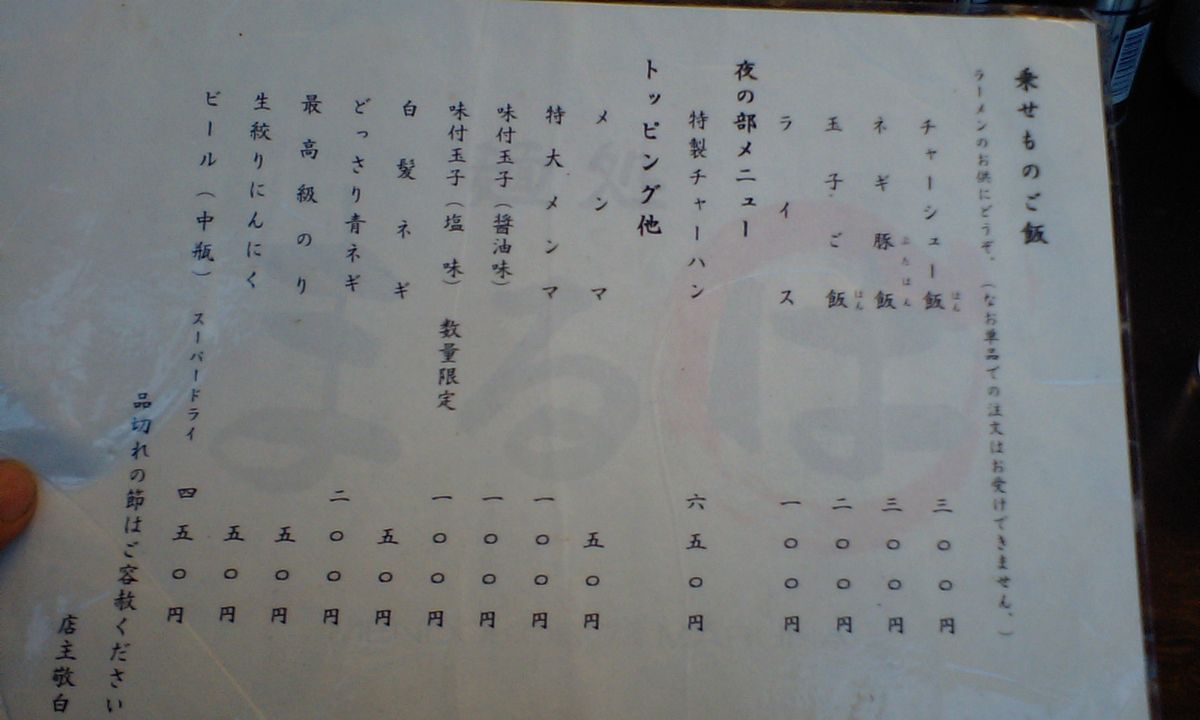 乗せものご飯
ラーメンのお供にどうぞ。(なお単品での注文はお受けできません。)
チャーシュー飯 はん 三〇〇円
ネギ豚飯 ぶたはん 三〇〇円
玉子ご飯 はん 二〇〇円
ライス 一〇〇円
夜の部メニュー
特製チャーハン 六五〇円
トッピング他
メンマ 五〇円
特大メンマ 一〇〇円
味付玉子(醤油味) 一〇〇円
味付玉子(塩味) 数量限定 一〇〇円
白髪ネギ 五〇円
どっさり青ネギ 二〇〇円
最高級のり 五〇円
生絞りにんにく 五〇円
ビール(中瓶) スーパードライ 四五〇円
品切れの節はご容赦ください
店主敬白